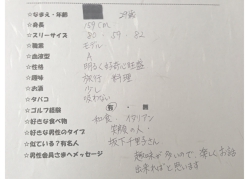 ☆なまえ・年齢 29歳
☆身長 159cm
☆スリーサイズ 80 . 59 . 82
☆職業 モデル
☆血液型 A
☆性格 明るく好奇心旺盛
☆趣味 旅行 料理
☆お酒 少し
☆タバコ 吸わない
☆ゴルフ経験 有・無
☆好きな食べ物 和食・イタリアン
☆好きな男性のタイプ 笑顔の人
☆似ている?有名人 坂下千里子さん
☆男性会員さまへメッセージ 趣味が多いので、楽しくお話
出来ればと思います